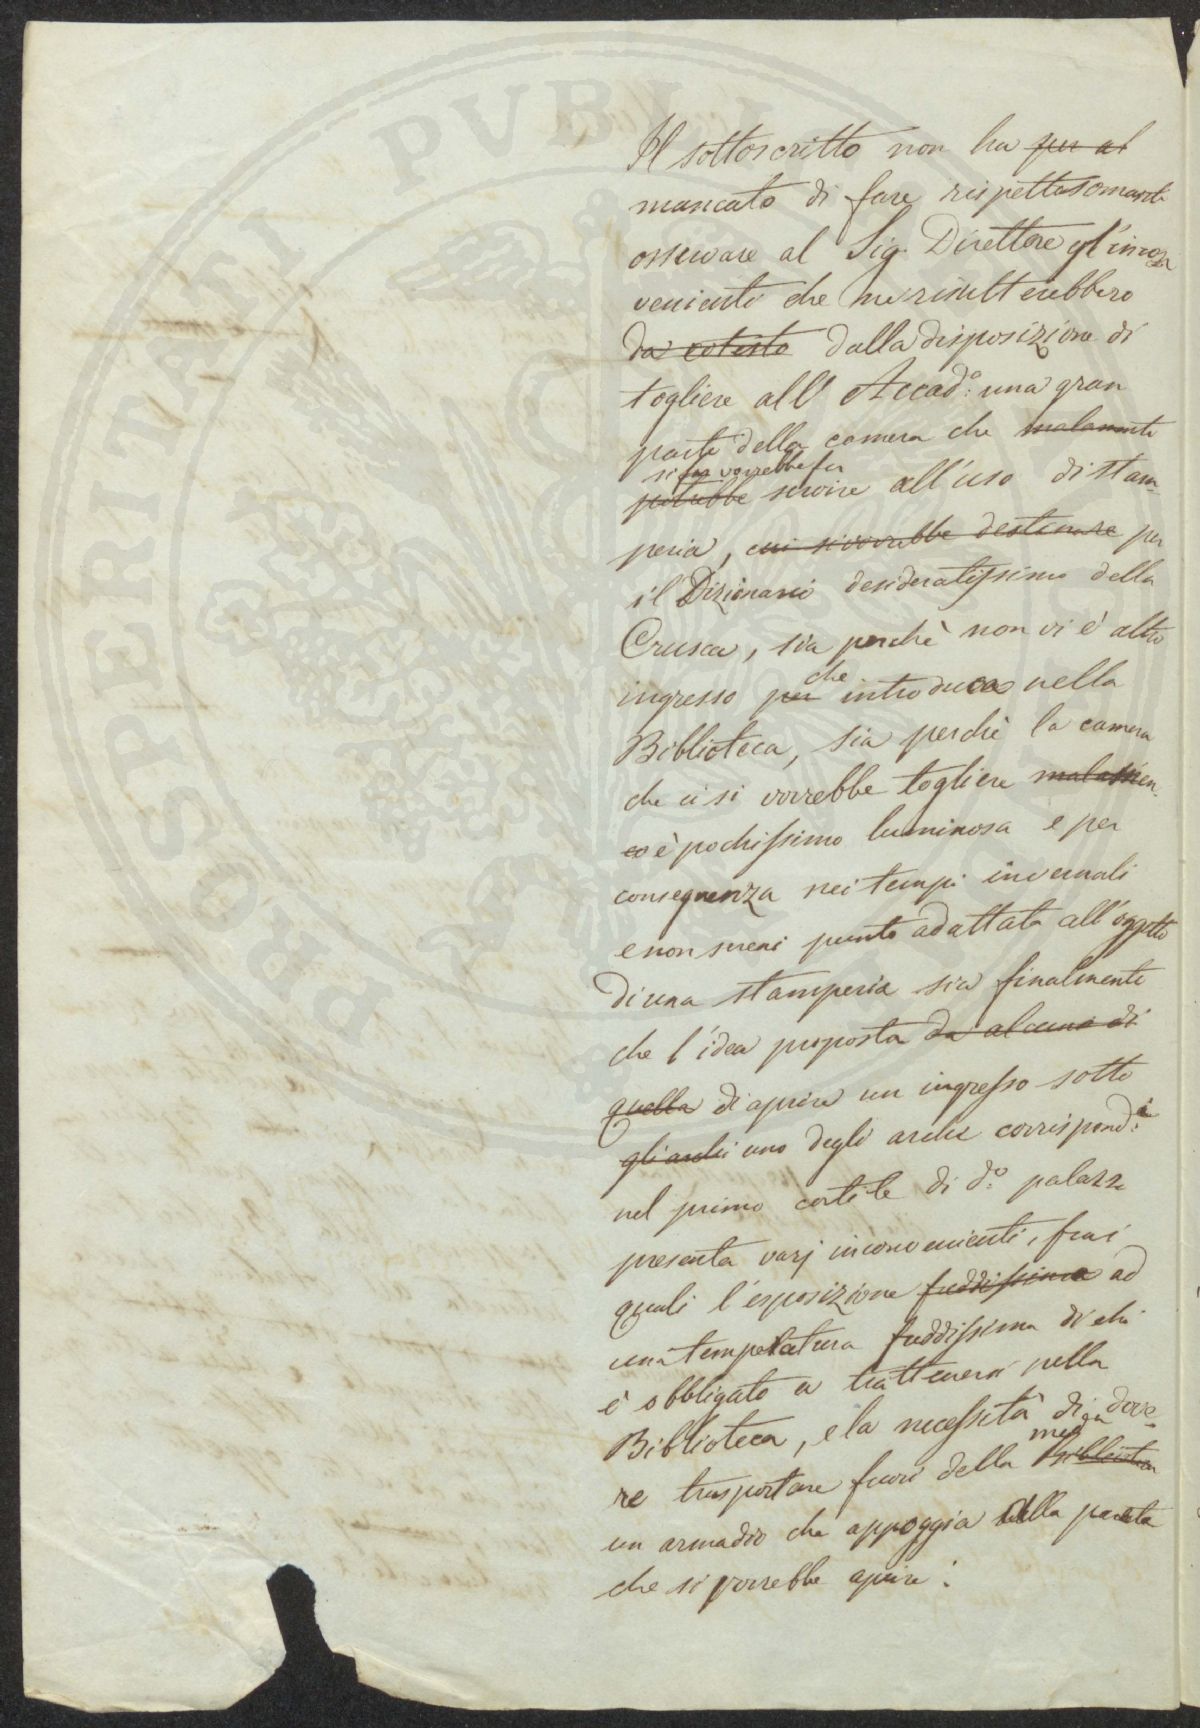 Il sottoscritto non ha per al
mancato di fare rispettosamente
osservare al Sig. Direttore gl'incon
venienti che ne risulterebbero
da cotesto dalla disposizione di
togliere all' Accad.a una gran
parte della camera che malamente
si vorrebbe far
potrebbe servire all'uso di stam-
peria, cui si vorrebbe destinare per
il Dizionario desideratissimo della
Crusca, sia perchè non vi è altro
che
ingresso per introduca nella
Biblioteca, sia perchè la camera
che ci si vorrebbe togliere
è pochissimo luminosa e per
conseguenza nei tempi invernali
e non sereni punto adattata all'oggetto
di una stamperia sia finalmente
che l'idea proposta da alcuno di
quella di aprire un ingresso sotto
gli archi uno degli archi corrispond.i
nel primo cortile di d.o palazzo
presenta varj inconvenienti, frai
quali l'esposizione freddissima ad
una temperatura freddissima di chi
è obbligato a trattenersi nella
Biblioteca, e la necessità di dove-
re trasportare fuori della Biblioteca
un armadio che appoggia alla parete
che si vorrebbe aprire.
PROSPERITATI PVBLICAE